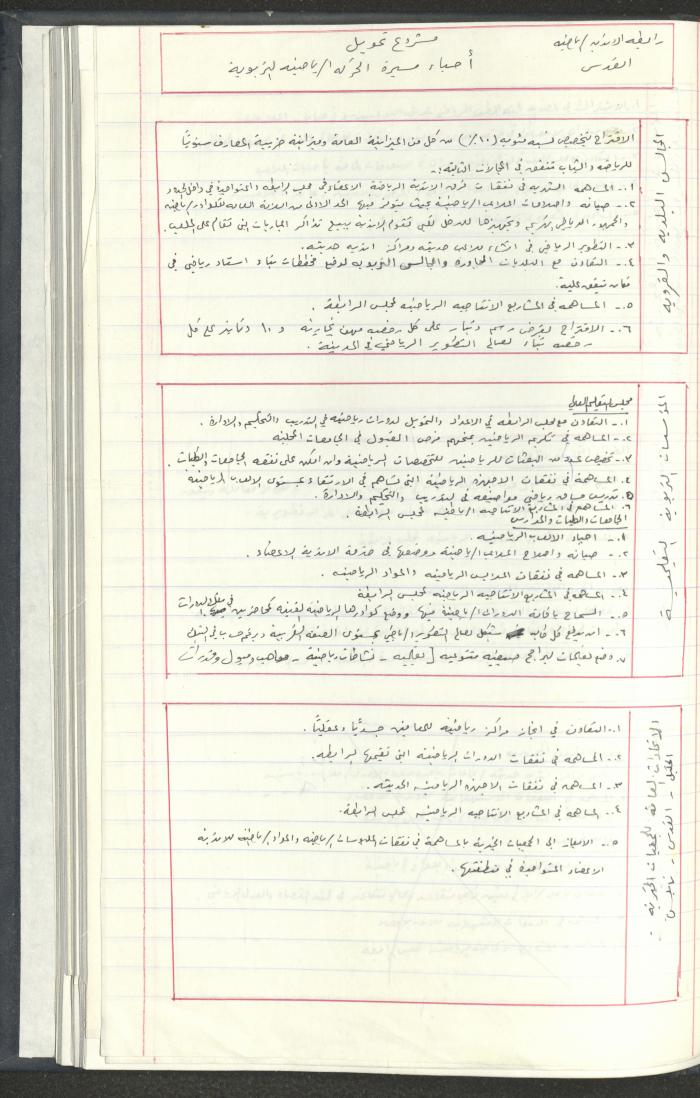 رابطة الاندية الرياضية
القدس
مشروع تمويل
أحياء مسيرة الحركة الرياضية التربوية
المجالس البلدية والقروية
الاقتراح بتخصيص نسبه مئويه (١٠٪) من كل من الميزانية العامة وميزانية ضريبة المعارف سنويًا
للرياضه والشباب تنفق في المجالات التالية:-
١.- المساهمه السنويه في نفقات فرق الاندية الرياضية الاعضاء في مجلس الرابطه والمتواجدة في
٢.- صيانه واصلاحات الملاعب الرياضية بحيث يتوفر فيها الحد الادنى من
والجمهور الرياضي وتجهيزها للدخل لكي تقوم الاندية ببيع تذاكر المباريات التي تقام على الملعب.
٣.- التطوير الرياضي في انشاء ملاعب حديثه ومراكز انديه حديثه.
٤.- التعاون مع البلديات المجاوره والمجالس القرويه لوضع مخططات بناء استاد رياضي في
مكان يتفق عليه.
٥.- المساهمه في المشاريع الانتاجيه الرياضيه لمجلس الرابطة.
٦.- الاقتراح بفرض رسم دينار على كل رخصه مهن تجاريه و ١٠ دنانير على كل
رخصه بناء لصالح التطوير الرياضي في المدينة.
المؤسسات التربوية التعليمية
مجلس التعليم العالي
١.- التعاون مع مجلس الرابطه في الاعداد والتمويل لدورات رياضيه في التدريب والتحكيم والادارة.
٢.- المساهمه في تكريم الرياضيين بمنحهم فرص القبول في الجامعات المحليه
٣.- تخصيص عدد من البعثات للرياضيين للتخصصات الرياضية وان امكن على نفقه الجامعات والكليات.
٤.- المساهمة في نفقات الاجهزه الرياضية التي تساهم في الارتقاء بمستوى الالعاب الرياضية
٥.- تدريس مساق رياضي مواضيعه في التدريب والتحكيم والادارة.
٦.- المساهمه في المشاريع الانتاجيه الرياضيه لمجلس الرابطة.
الجامعات والكليات والمدارس
١.- احياء الالعاب الرياضيه.
٢.- صيانه واصلاح الملاعب الرياضية ووضعها في خدمة الاندية الاعضاء.
٣.- المساهمه في نفقات الملابس الرياضيه والمواد الرياضيه.
٤.- المساهمه في المشاريع الانتاجيه الرياضيه لمجلس الرابطة
٥.- السماح باقامة الدورات الرياضية فيها ووضع كوادرها الرياضية الفنية كمحاضرين في تلك الدورات
٦.- ان يدفع كل طالب شيكل لصالح التطوير الرياضي بمستوى الضفه الغربية
٧.- وضع تعليمات لبرامج صيفية متنوعه [ تعليميه - نشاطات رياضية - مواهب وميول وقدرات
الاتحادات العامه للجمعيات الخيرية
الخليل - القدس - نابلس
١.- التعاون في انجاز مراكز رياضية للمعاقين جسديًا وعقليًا.
٢.- المساهمه في نفقات الدورات الرياضية التي تقيمها الرابطه.
٣.- المساهمه في نفقات الاجهزه الرياضيه الحديثه.
٤.- المساهمه في المشاريع الانتاجيه الرياضيه لمجلس الرابطة.
٥.- الايعاز الى الجمعيات الخيرية بالمساهمة في نفقات الملبوسات الرياضيه والمواد الرياضيه للاندية
الاعضاء المتواجدة في منطقتها.